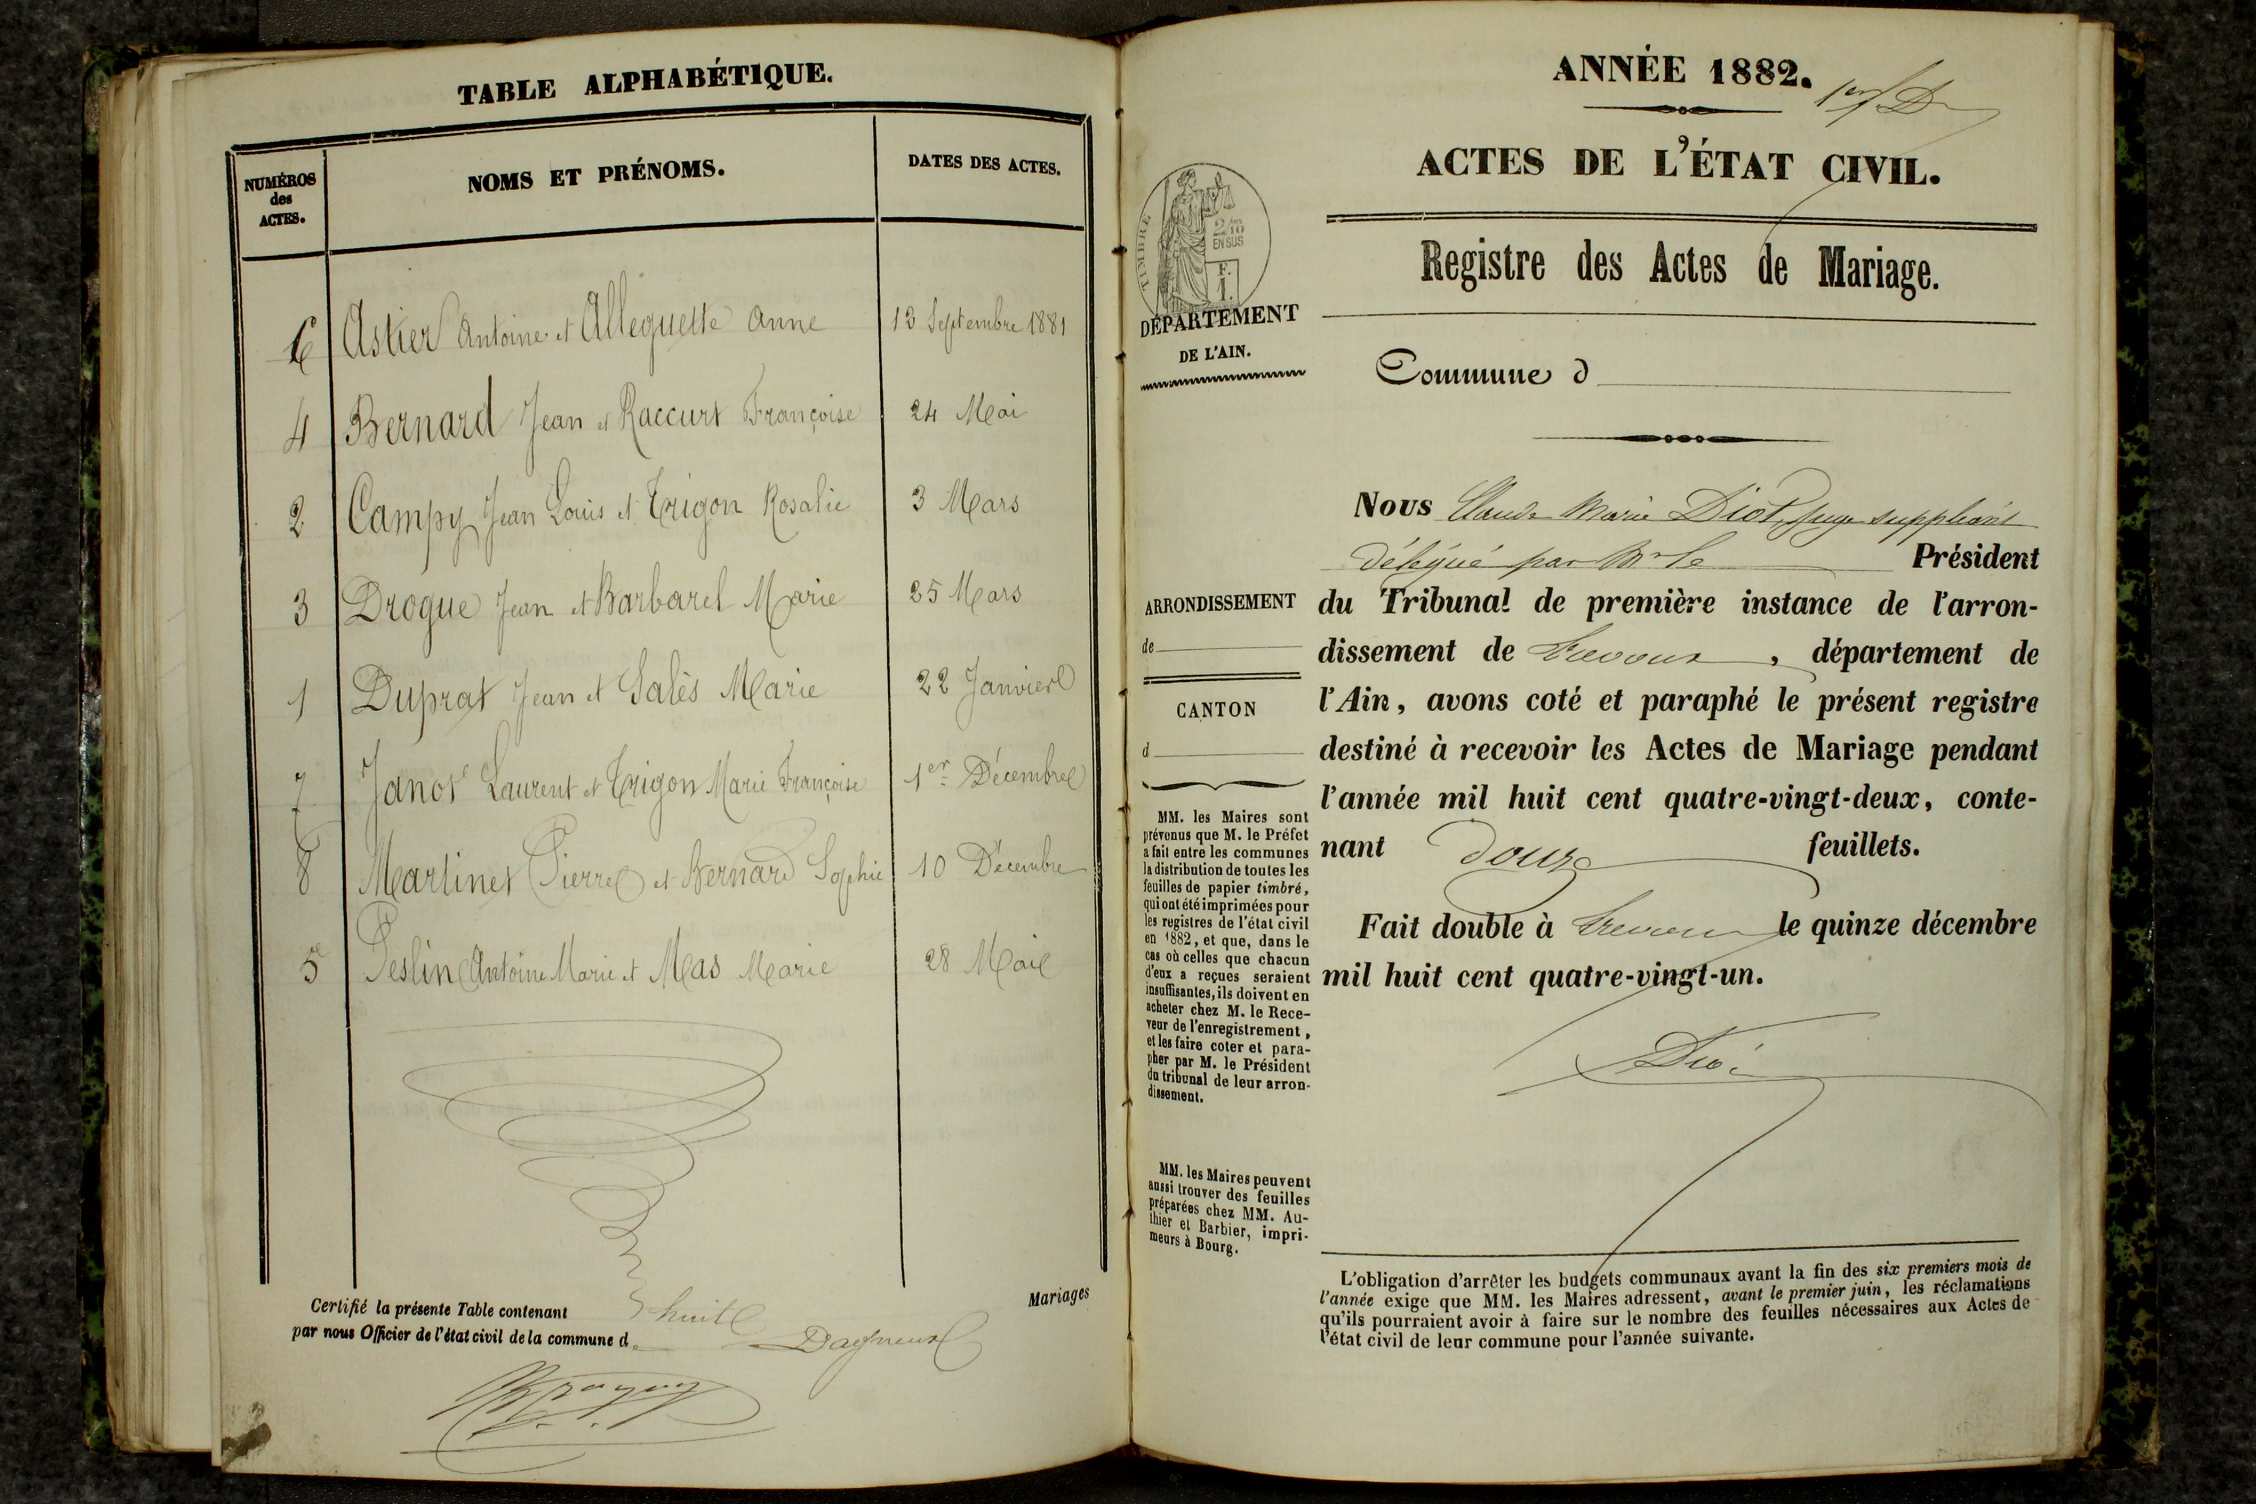 TABLE ALPHABÉTIQUE.
NUMÉROS des ACTES.
NOMS ET PRÉNOMS.
DATES DES ACTES.
6 Astier Antoine et Alleguette Anne 13 Septembre 1881
4 Bernard Jean et Raccurt Françoise 24 Mai
2 Campy Jean Louis et Trigon Rosalie 3 Mars
3 Drogue Jean et Barbarel Marie 25 Mars
1 Duprat Jean et Salès Marie 22 Janvier
7 Janot Laurent et Trigon Marie Françoise 1er Décembre
8 Martinet Pierre et Bernard Sophie 10 Décembre
5 Peslin Antoine Marie et Mas Marie 28 Mai
Certifié la présente Table contenant huit Mariages
par nous Officier de l'état civil de la commune d Dagneux
ANNÉE 1882.
1er
ACTES DE L'ÉTAT CIVIL.
Registre des Actes de Mariage.
TIMBRE
2/10
EN SUS
F.
1.
DÉPARTEMENT
DE L'AIN.
Commune d
ARRONDISSEMENT
de
CANTON
d
MM. les Maires sont
prévenus que M. le Préfet
a fait entre les communes
la distribution de toutes les
feuilles de papier timbré,
qui ont été imprimées pour
les registres de l'état civil
en 1882, et que, dans le
cas où celles que chacun
d'eux a reçues seraient
insuffisantes, ils doivent en
acheter chez M. le Rece-
veur de l'enregistrement,
et les faire coter et para-
pher par M. le Président
du tribunal de leur arron-
dissement.
MM. les Maires peuvent
aussi trouver des feuilles
préparées chez MM. Au-
thier et Barbier, impri-
meurs à Bourg.
Nous Claude Marie Diot, Juge suppléant
délégué par Mr le Président
du Tribunal de première instance de l'arron-
dissement de Trévoux, département de
l'Ain, avons coté et paraphé le présent registre
destiné à recevoir les Actes de Mariage pendant
l'année mil huit cent quatre-vingt-deux, conte-
nant douze feuillets.
Fait double à Trévoux le quinze décembre
mil huit cent quatre-vingt-un.
Diot
L'obligation d'arrêter les budgets communaux avant la fin des six premiers mois de
l'année exige que MM. les Maires adressent, avant le premier juin, les réclamations
qu'ils pourraient avoir à faire sur le nombre des feuilles nécessaires aux Actes de
l'état civil de leur commune pour l'année suivante.